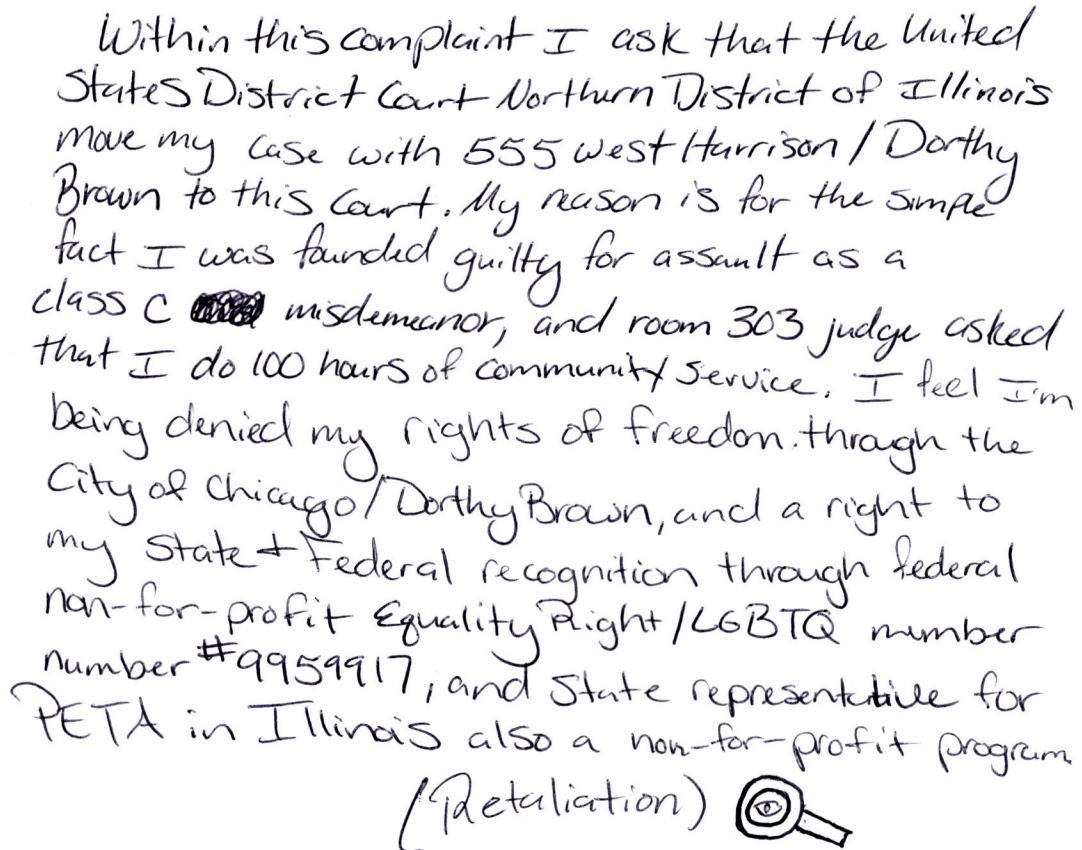 Within this complaint I ask that the United
States District Court Northurn District of Illinois
move my case with 555 west Harrison / Dorthy
Brown to this Court. My reason is for the simple
fact I was founded guilty for assault as a
class C misdemeanor, and room 303 judge asked
that I do 100 hours of community service. I feel I'm
being denied my rights of freedom through the
City of Chicago / Dorthy Brown, and a right to
my State + Federal recognition through federal
non-for-profit Equality Right / LGBTQ member
number #9959917, and State representative for
PETA in Illinois also a non-for-profit program
(Retaliation)